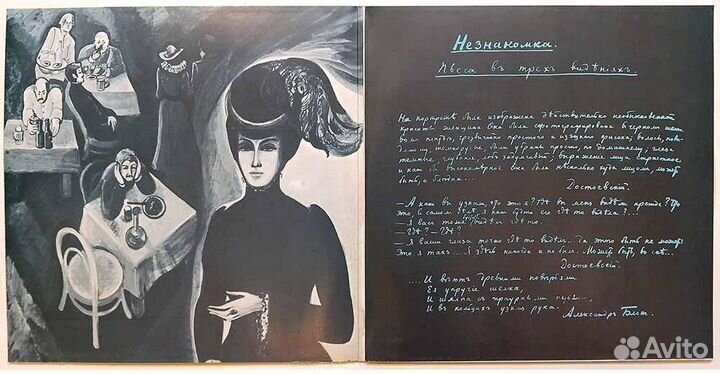 Незнакомка.
Пьеса въ трехъ видѣнiяхъ.
На портретѣ была изображена дѣйствительно необыкновенной
красоты женщина. Она была сфотографирована въ черномъ шелко-
вомъ платьѣ, чрезвычайно простого и изящнаго фасона; волосы, пови-
димому, темнорусые, были убраны просто, по домашнему; глаза
темные, глубокiе, лобъ задумчивый; выраженiе лица страстное
и какъ бы высокомѣрное. Она была нѣсколько худа лицомъ, можетъ
быть, и блѣдна...
Достоевскiй.
— А какъ вы узнали, что это я? Гдѣ вы меня видѣли прежде? Что
это, въ самомъ дѣлѣ, я какъ будто его гдѣ то видѣла?..
— Я васъ тоже будто видѣлъ гдѣ то.
— Гдѣ? — Гдѣ?
— Я ваши глаза точно гдѣ то видѣлъ... да этого быть не можетъ!
Это я такъ... Я здѣсь никогда и не былъ. Можетъ быть, во снѣ...
Достоевскiй.
....И вѣютъ древними повѣрьями
Ея упругiе шелка,
И шляпа съ траурными перьями,
И въ кольцахъ узкая рука.
Александръ Блокъ.
Avito